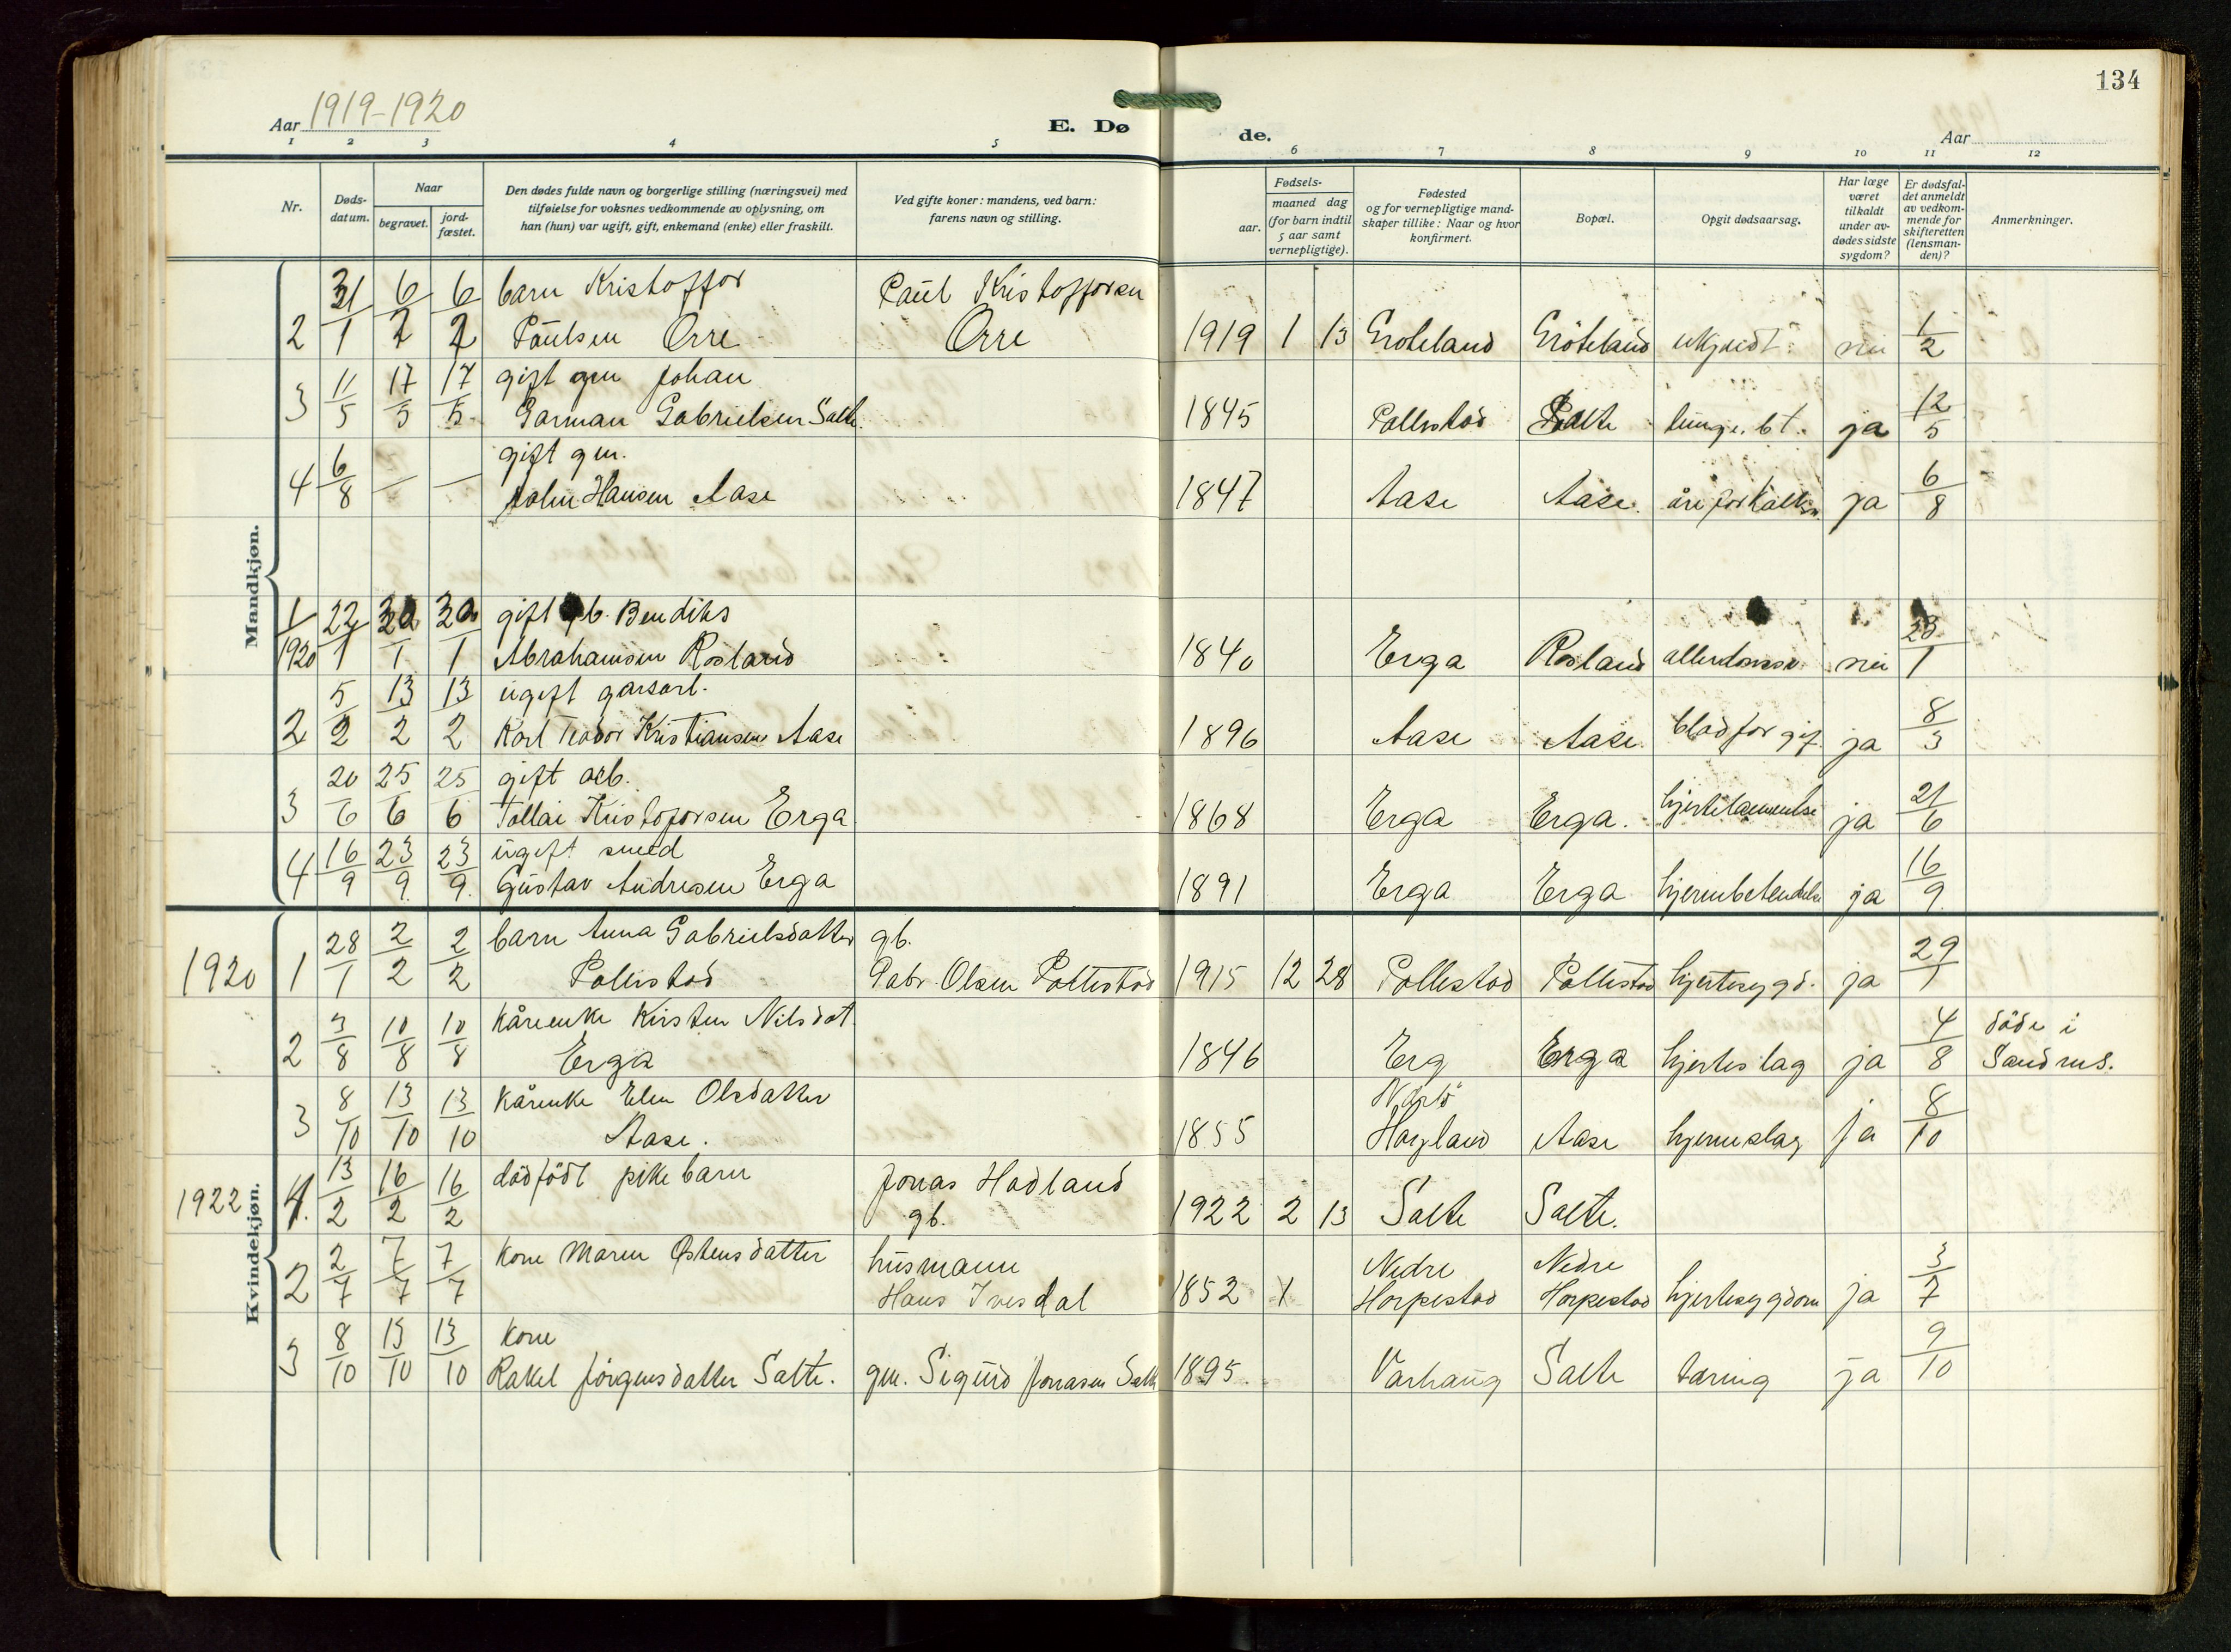 134
Aar 1919-1920
E. Dø
de.
Aar
1 2 3 4 5 6 7 8 9 10 11 12
Nr.
Døds-
datum.
Naar
begravet.
jord-
fæstet.
Den dødes fulde navn og borgerlige stilling (næringsvei) med
tilføielse for voksnes vedkommende av oplysning, om
han (hun) var ugift, gift, enkemand (enke) eller fraskilt.
Ved gifte koner: mandens, ved barn:
farens navn og stilling.
Fødsels-
aar.
maaned dag
(for barn indtil
5 aar samt
vernepligtige).
Fødested
og for vernepligtige mand-
skaper tillike: Naar og hvor
konfirmert.
Bopæl.
Opgit dødsaarsag.
Har læge
været
tilkaldt
under av-
dødes sidste
sygdom?
Er dødsfal-
det anmeldt
av vedkom-
mende for
skifteretten
(lensman-
den)?
Anmerkninger.
Mandkjøn.
31 6 6 barn Kristoffor Paul Kristofforsen
2 1 2 2 Paulsen Orre Orre 1919 1 13 Eroteland Eröteland ukjendt nei 1/2
11 17 17 gift gm Johan
3 5 5 5 Garman Gabrielsen Salte. 1845 Pollestad Salte lunge.bt. ja 12/5
6 gift gm.
4 8 — — John Hansen Aase 1847 Aase Aase. åreforkalkn. ja 6/8
1 22 30 30 gift gb. Bendiks
1920 1 1 1 Abrahamsen Rosland 1840 Erga Rosland alderdomssv. nei 23/1
5 13 13 ugift garsarb.
2 2 2 2 Karl Teodor Kristiansen Aase 1896 Aase Aase. blodforgif. ja 8/3
20 25 25 gift arb.
3 6 6 6 Tollai Kristoforsen Erga 1868 Erga Erga. hjertelammelse ja 21/6
16 23 23 ugift smed
4 9 9. 9. Gustav Andresen Erga 1891 Erga Erga hjernebetendelse ja 16/9
Kvindekjøn.
28 2 2 barn Anna Gabrielsdatter gb.
1920 1 1 2 2 Pollestad Gabr. Olsen Pollestad 1915 12 28 Pollestad Pollestad hjertesygd. ja 29/1
3 10 10 kårenke Kirsten Nilsdat. döde i
2 8 8 8 Erga 1846 Erg Erga hjerteslag ja 4/8 Sandnes.
8 13 13 kårenke Elen Olsdatter
3 10 10 10 Aase. 1855 Högland Aase hjerneslag ja 8/10
13 16 16 dödfödt pikebarn Jonas Hodland
1922 1. 2 2 2 gb. 1922 2 13 Salte Salte.
2 7 7 kone Maren Østensdatter husmann Nedre Nedre
2 7 7 7 Hans Ivesdal 1852 X Horpestad Horpestad hjertesygdom ja 3/7
8 13 13 kone
3 10 10 10 Rakel Jörgensdatter Salte. gm. Sigurd Jonasen Salte 1895. Varhaug Salte tæring ja 9/10